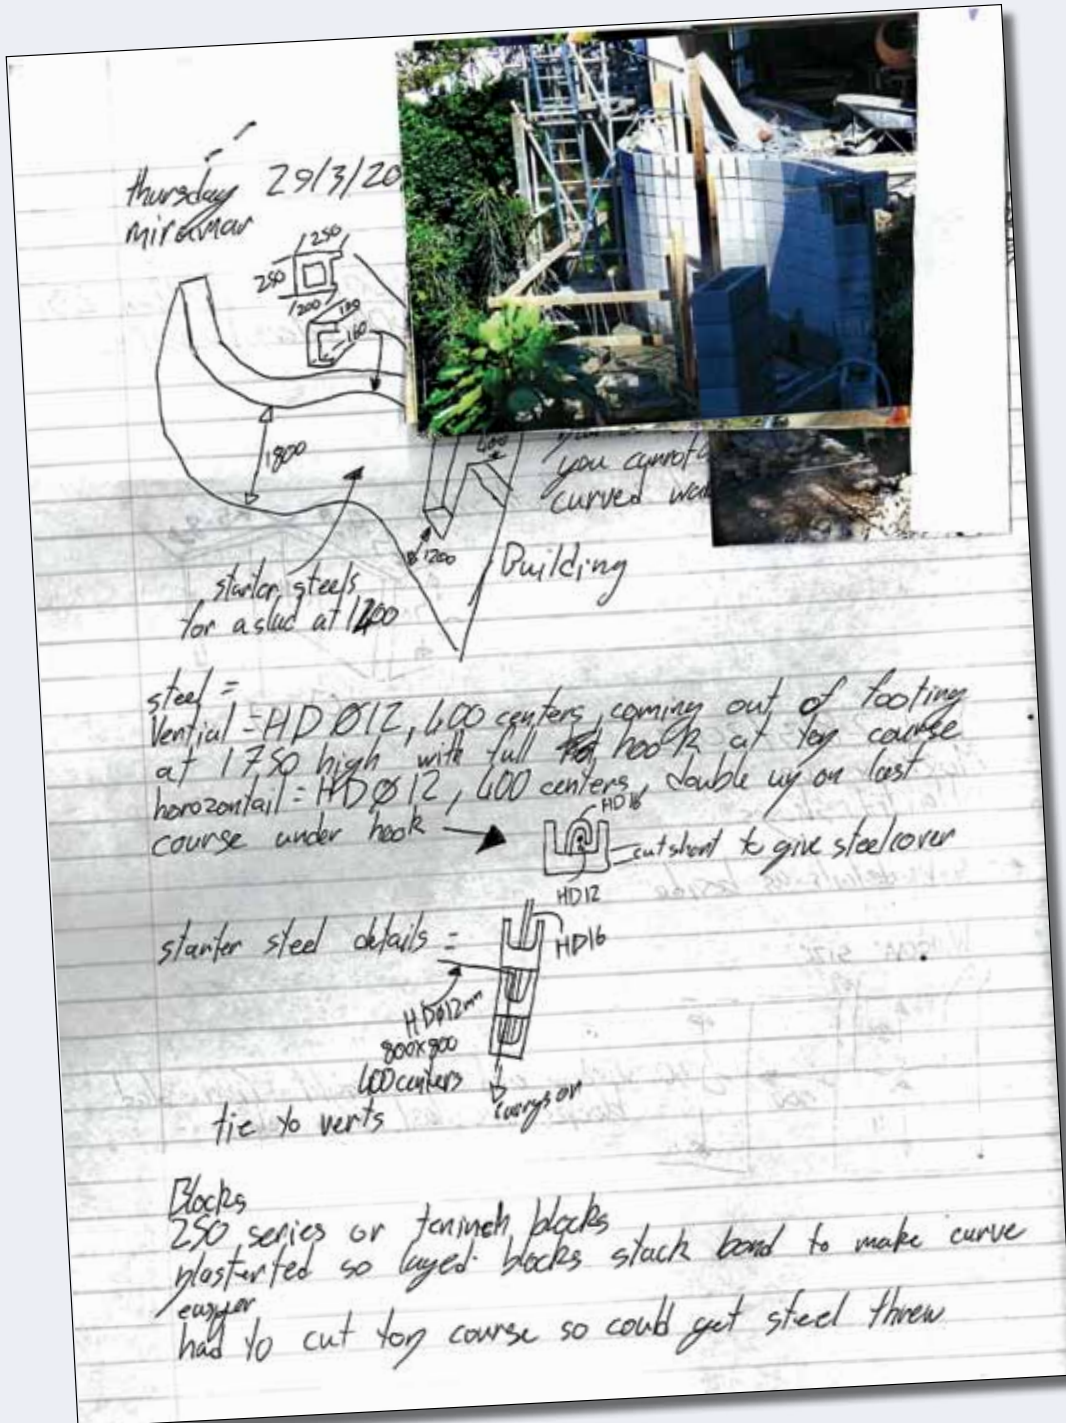 thursday 29/3/20
miramar
250
250
200
120
160
1800
400
you cannot
curved wa
1200
Building
starter steels
for a slad at 1200
steel =
Vential = HD Ø12, 400 centers, coming out of footing
at 1750 high with full hook at top course
horozontail = HD Ø12, 400 centers, double up on last
course under hook
HD16
cut short to give steel cover
HD12
starter steel details =
HD16
HDØ12mm
800x800
400 centers
carrys on
tie to verts
Blocks
250 series or teninch blocks
plasterted so layed blocks stack bond to make curve
easyer
had to cut top course so could get steel threw